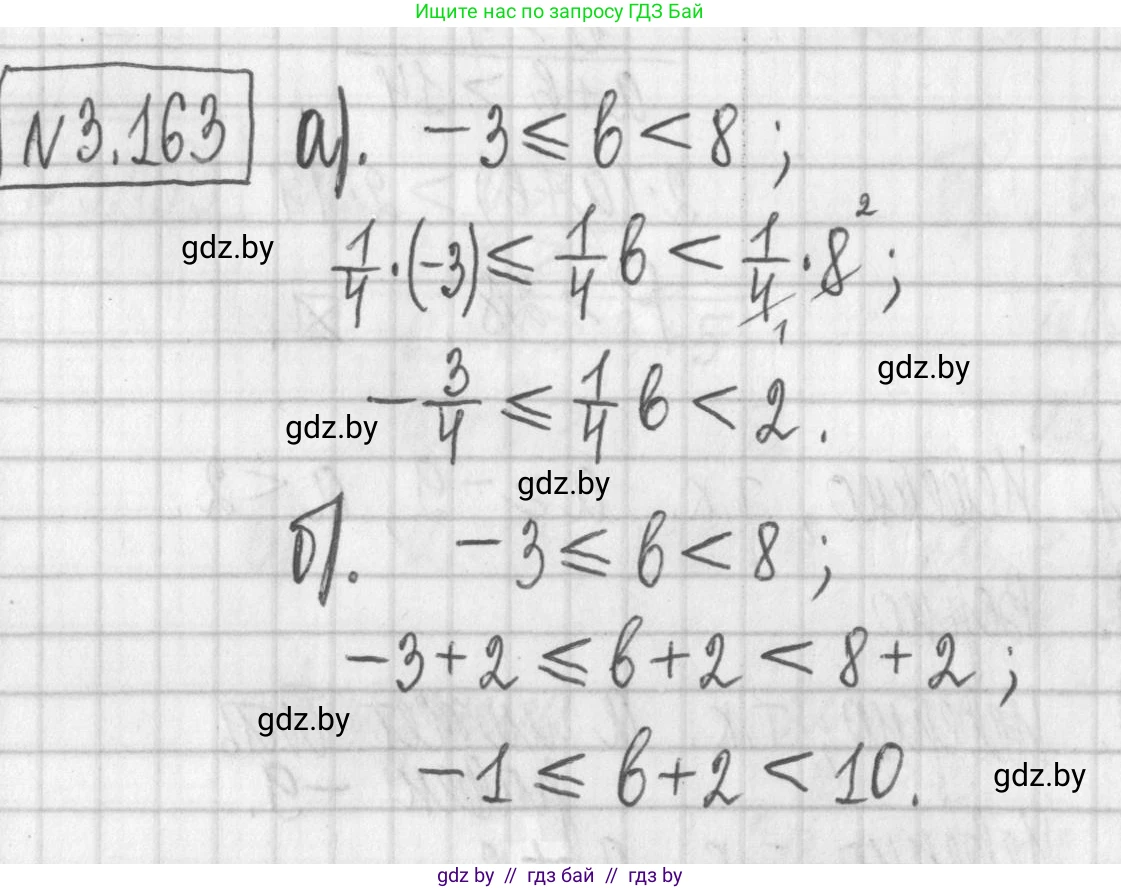 Ищите нас по запросу ГДЗ Бай
N 3.163 а). −3 ≤ в < 8 ;
gdz.by
1/4 · (−3) ≤ 1/4 в < 1/4 · 8 ;
2
1
gdz.by
−3/4 ≤ 1/4 в < 2 .
gdz.by
gdz.by
б). −3 ≤ в < 8 ;
−3 + 2 ≤ в + 2 < 8 + 2 ;
gdz.by
−1 ≤ в + 2 < 10.
gdz.by
gdz by // гдз бай // гдз by